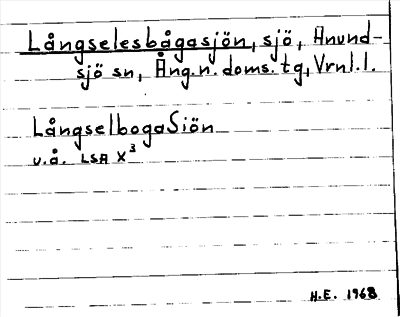 Långselesbågasjön, sjö, Anund-
sjö sn, Ång.n.doms.tg, Vrnl.l.
LångselbogaSiön
u.å. LSA X³
H.E. 1968